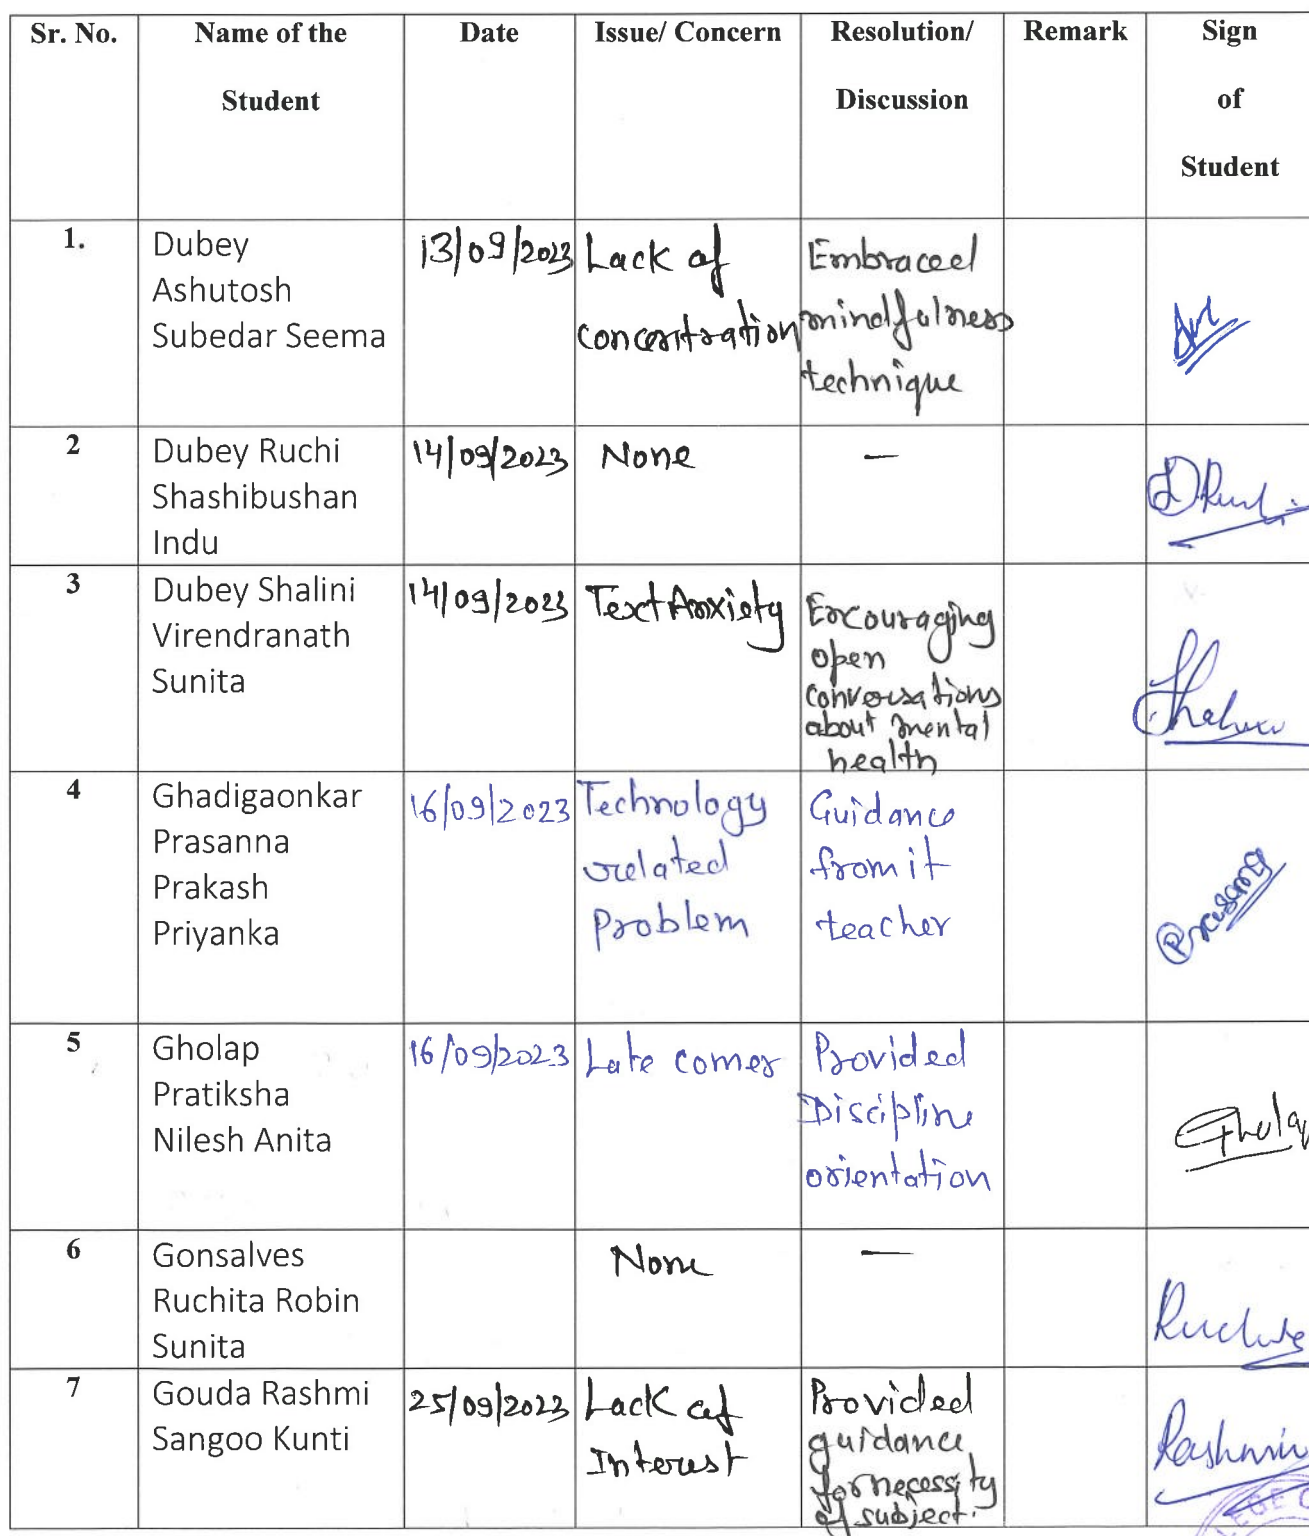 Sr. No. Name of the Student Date Issue/ Concern Resolution/ Discussion Remark Sign of Student
1. Dubey Ashutosh Subedar Seema 13/09/2023 Lack of concentration Embraced mindfulness technique
2 Dubey Ruchi Shashibushan Indu 14/09/2023 None — DRuchi
3 Dubey Shalini Virendranath Sunita 14/09/2023 Text Anxiety Encouraging open conversations about mental health
4 Ghadigaonkar Prasanna Prakash Priyanka 16/09/2023 Technology related Problem Guidance from it teacher
5 Gholap Pratiksha Nilesh Anita 16/09/2023 Late comer Provided Discipline orientation Gholap
6 Gonsalves Ruchita Robin Sunita None —
7 Gouda Rashmi Sangoo Kunti 25/09/2023 Lack of Interest Provided guidance for necessity of subject. Rashmi